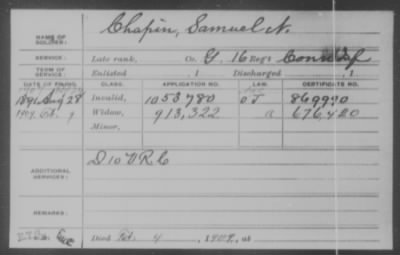 NAME OF SOLDIER: Chapin, Samuel N.
SERVICE: Late rank, Co. G, 16 Reg't Conn Inf
TERM OF SERVICE: Enlisted , 1 Discharged , 1
DATE OF FILING. CLASS. APPLICATION NO. LAW. CERTIFICATE NO.
1891 Aug 28 Invalid, 1053780
1909 Oct. 9 Widow, 913,322 676,420
Minor,
ADDITIONAL SERVICES: D 10 V R C
REMARKS:
Died 4, 1909, at